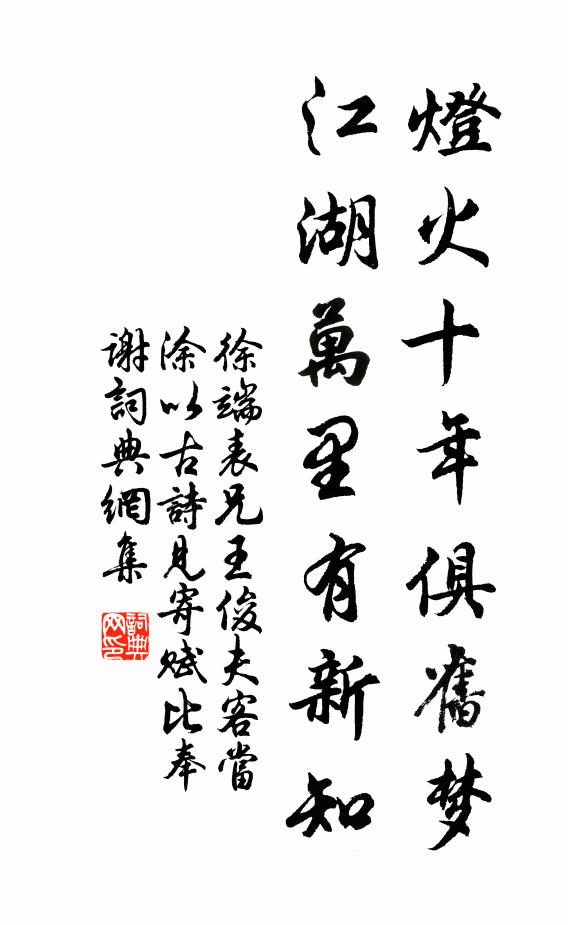 燈火十年俱舊梦
江湖萬里有新知
徐端表兄王俊夫客當
涂以古詩見寄赋比奉
谢詞典網集
詞典
网印